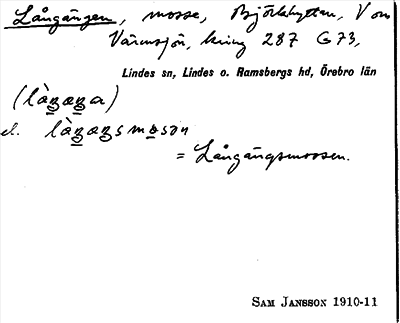 Långängen, mosse, Björkhyttan, V om
Värmsjön, kring 287 G 73,
Lindes sn, Lindes o. Ramsbergs hd, Örebro län
el.
= Långängsmossen.
SAM JANSSON 1910-11